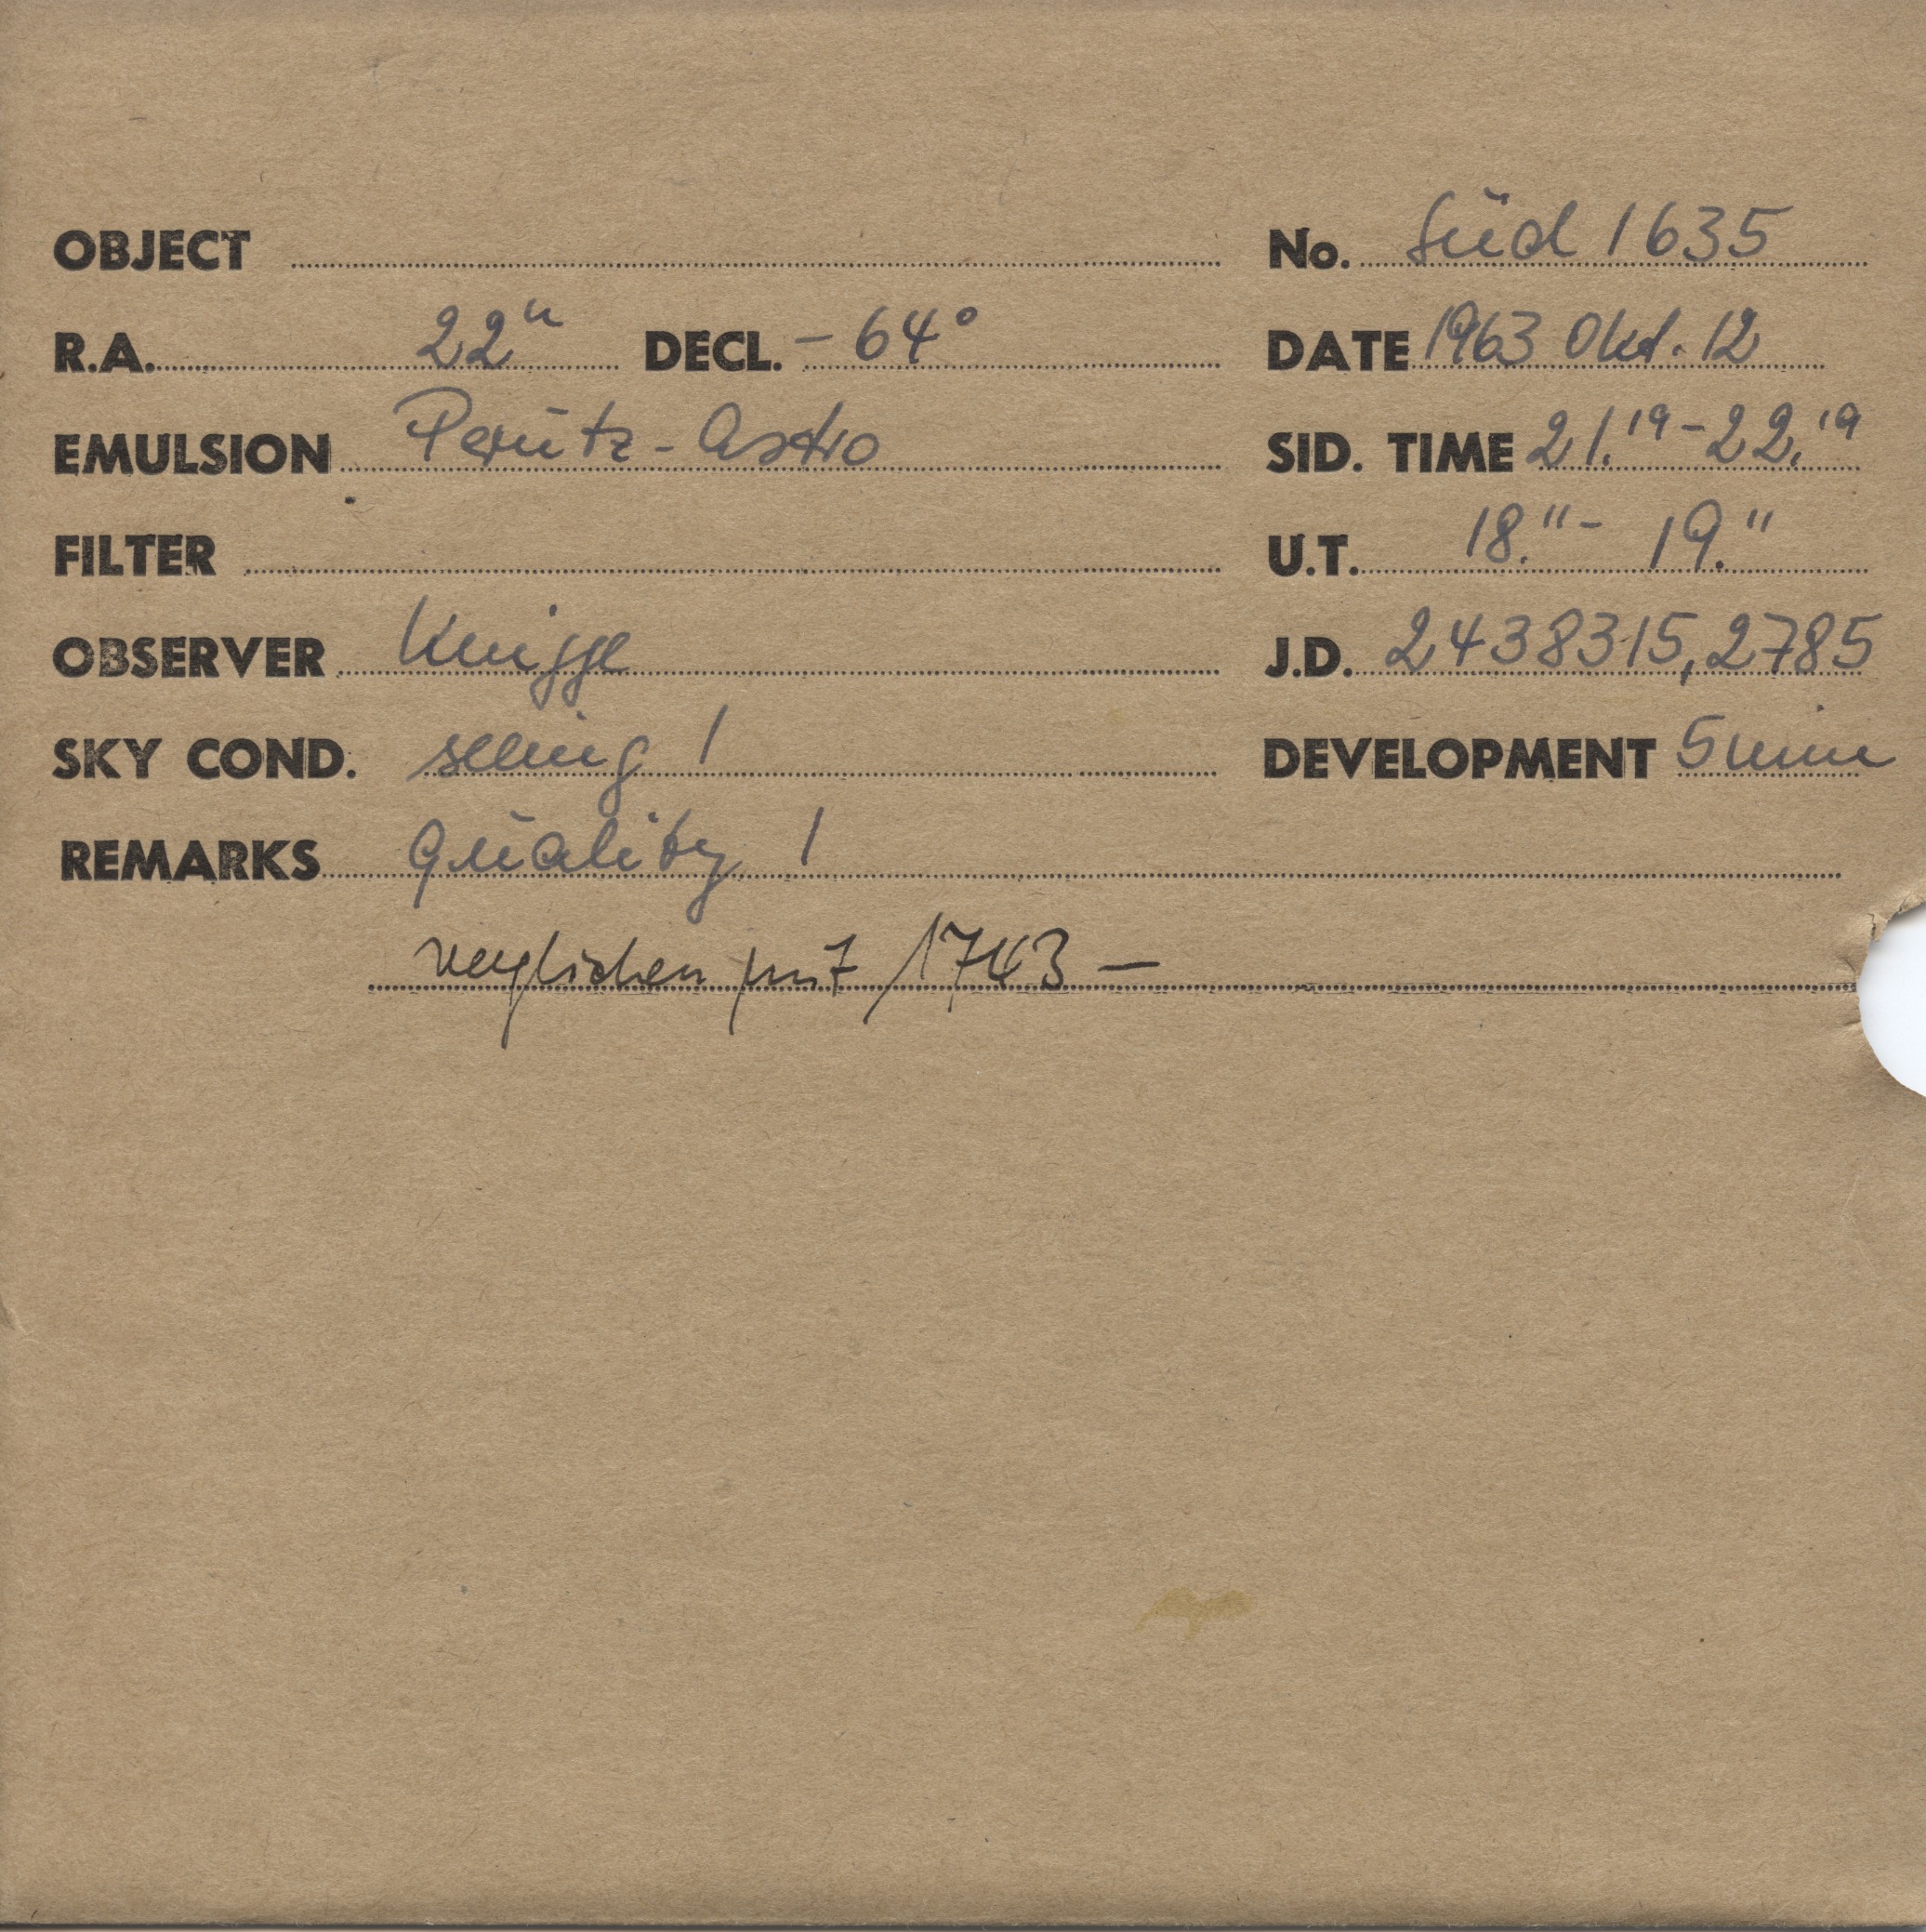 OBJECT No. Süd 1635
R.A. 22h DECL. - 64° DATE 1963 Okt. 12
EMULSION Perutz-Astro SID. TIME 21.19 - 22.19
FILTER U.T. 18.11 - 19.11
OBSERVER Knigge J.D. 2438315,2785
SKY COND. seeing 1 DEVELOPMENT 5 min
REMARKS Quality 1
verglichen mit 1743 —